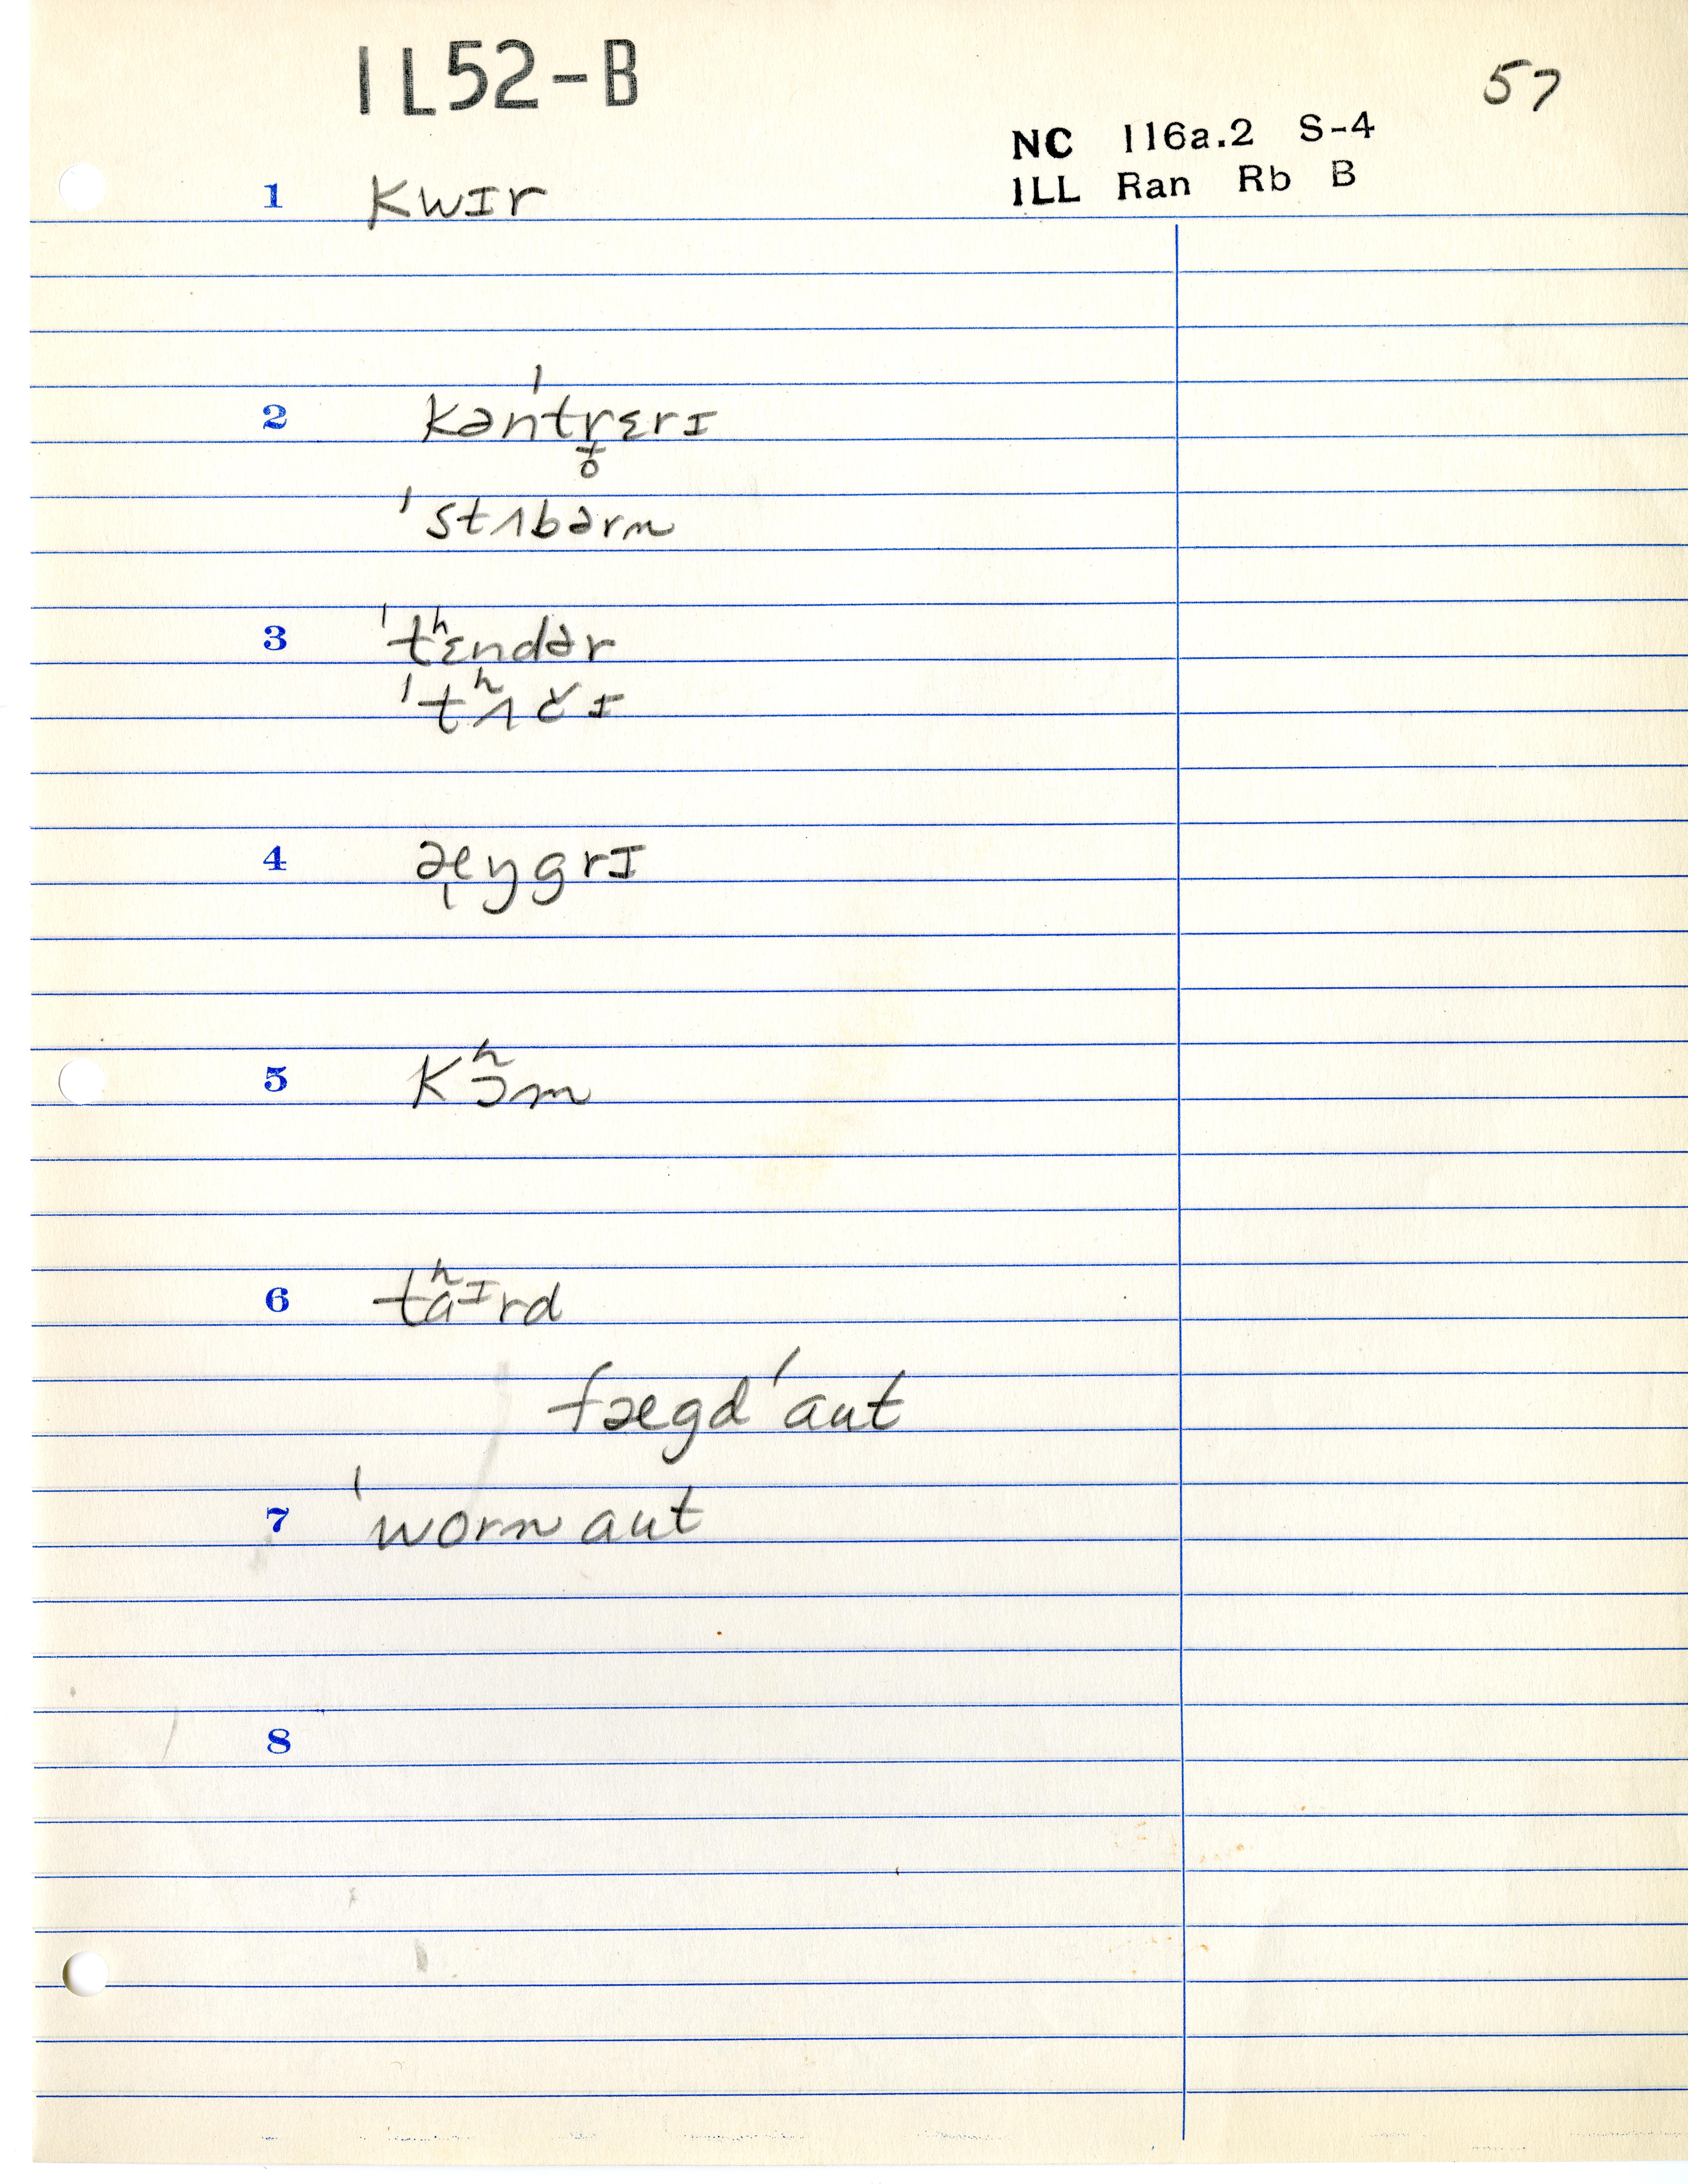 IL52-B
57
NC 116a.2 S-4
ILL Ran Rb B
1 kwɪr
2 kənˈtr̥ɛrɪ
ˈstʌbərn
3 ˈtʰɛndər
ˈtʰʌčɪ
4 æŋgrɪ
5 kʰɔm
6 tʰaɪrd
fægd ˈaut
7 ˈworn aut
8